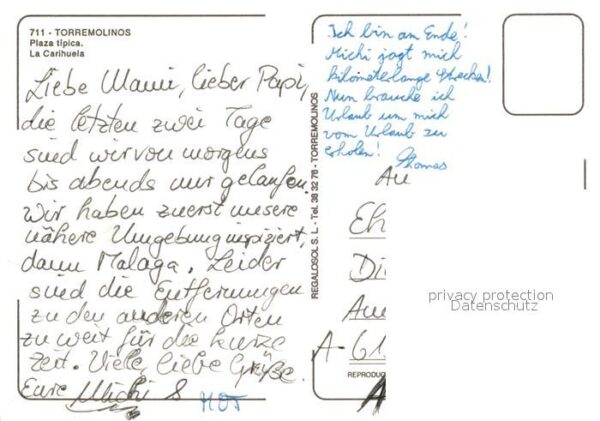 711 - TORREMOLINOS
Plaza típica.
La Carihuela
Liebe Mami, lieber Papi,
die letzten zwei Tage
sind wir von morgens
bis abends nur gelaufen.
Wir haben zuerst unsere
nähere Umgebung inspiziert,
dann Malaga. Leider
sind die Entfernungen
zu den anderen Orten
zu weit für die kurze
Zeit. Viele, liebe Grüße.
Eure Michi &
REGALOSOL S. L. - Tel. 38 32 78 - TORREMOLINOS
Ich bin am Ende!
Michi jagt mich
kilometerlange Strecken!
Nun brauche ich
Urlaub um mich
vom Urlaub zu
erholen!
Thomas
An
Eh
Di
Am
A-61
REPRODUC
privacy protection
Datenschutz